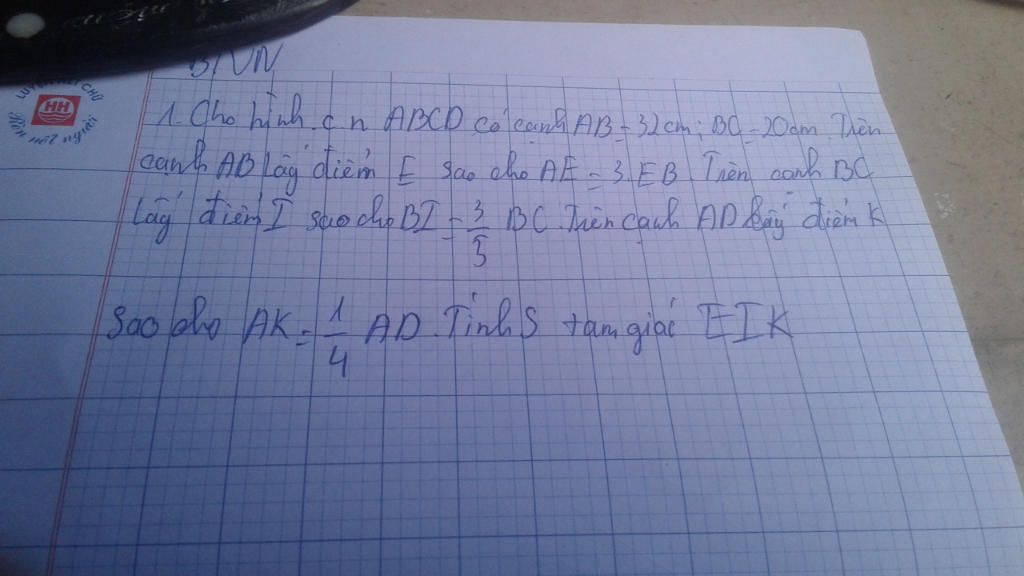 BTVN
LUYỆN NÉT CHỮ
HH
RÈN NẾT NGƯỜI
1. Cho hình c n ABCD có cạnh AB = 32cm; BC = 20cm. Trên
cạnh AB lấy điểm E sao cho AE = 3.EB. Trên cạnh BC
lấy điểm I sao cho BI = 3/5 BC. Trên cạnh AD lấy điểm K
sao cho AK = 1/4 AD. Tính S tam giác EIK